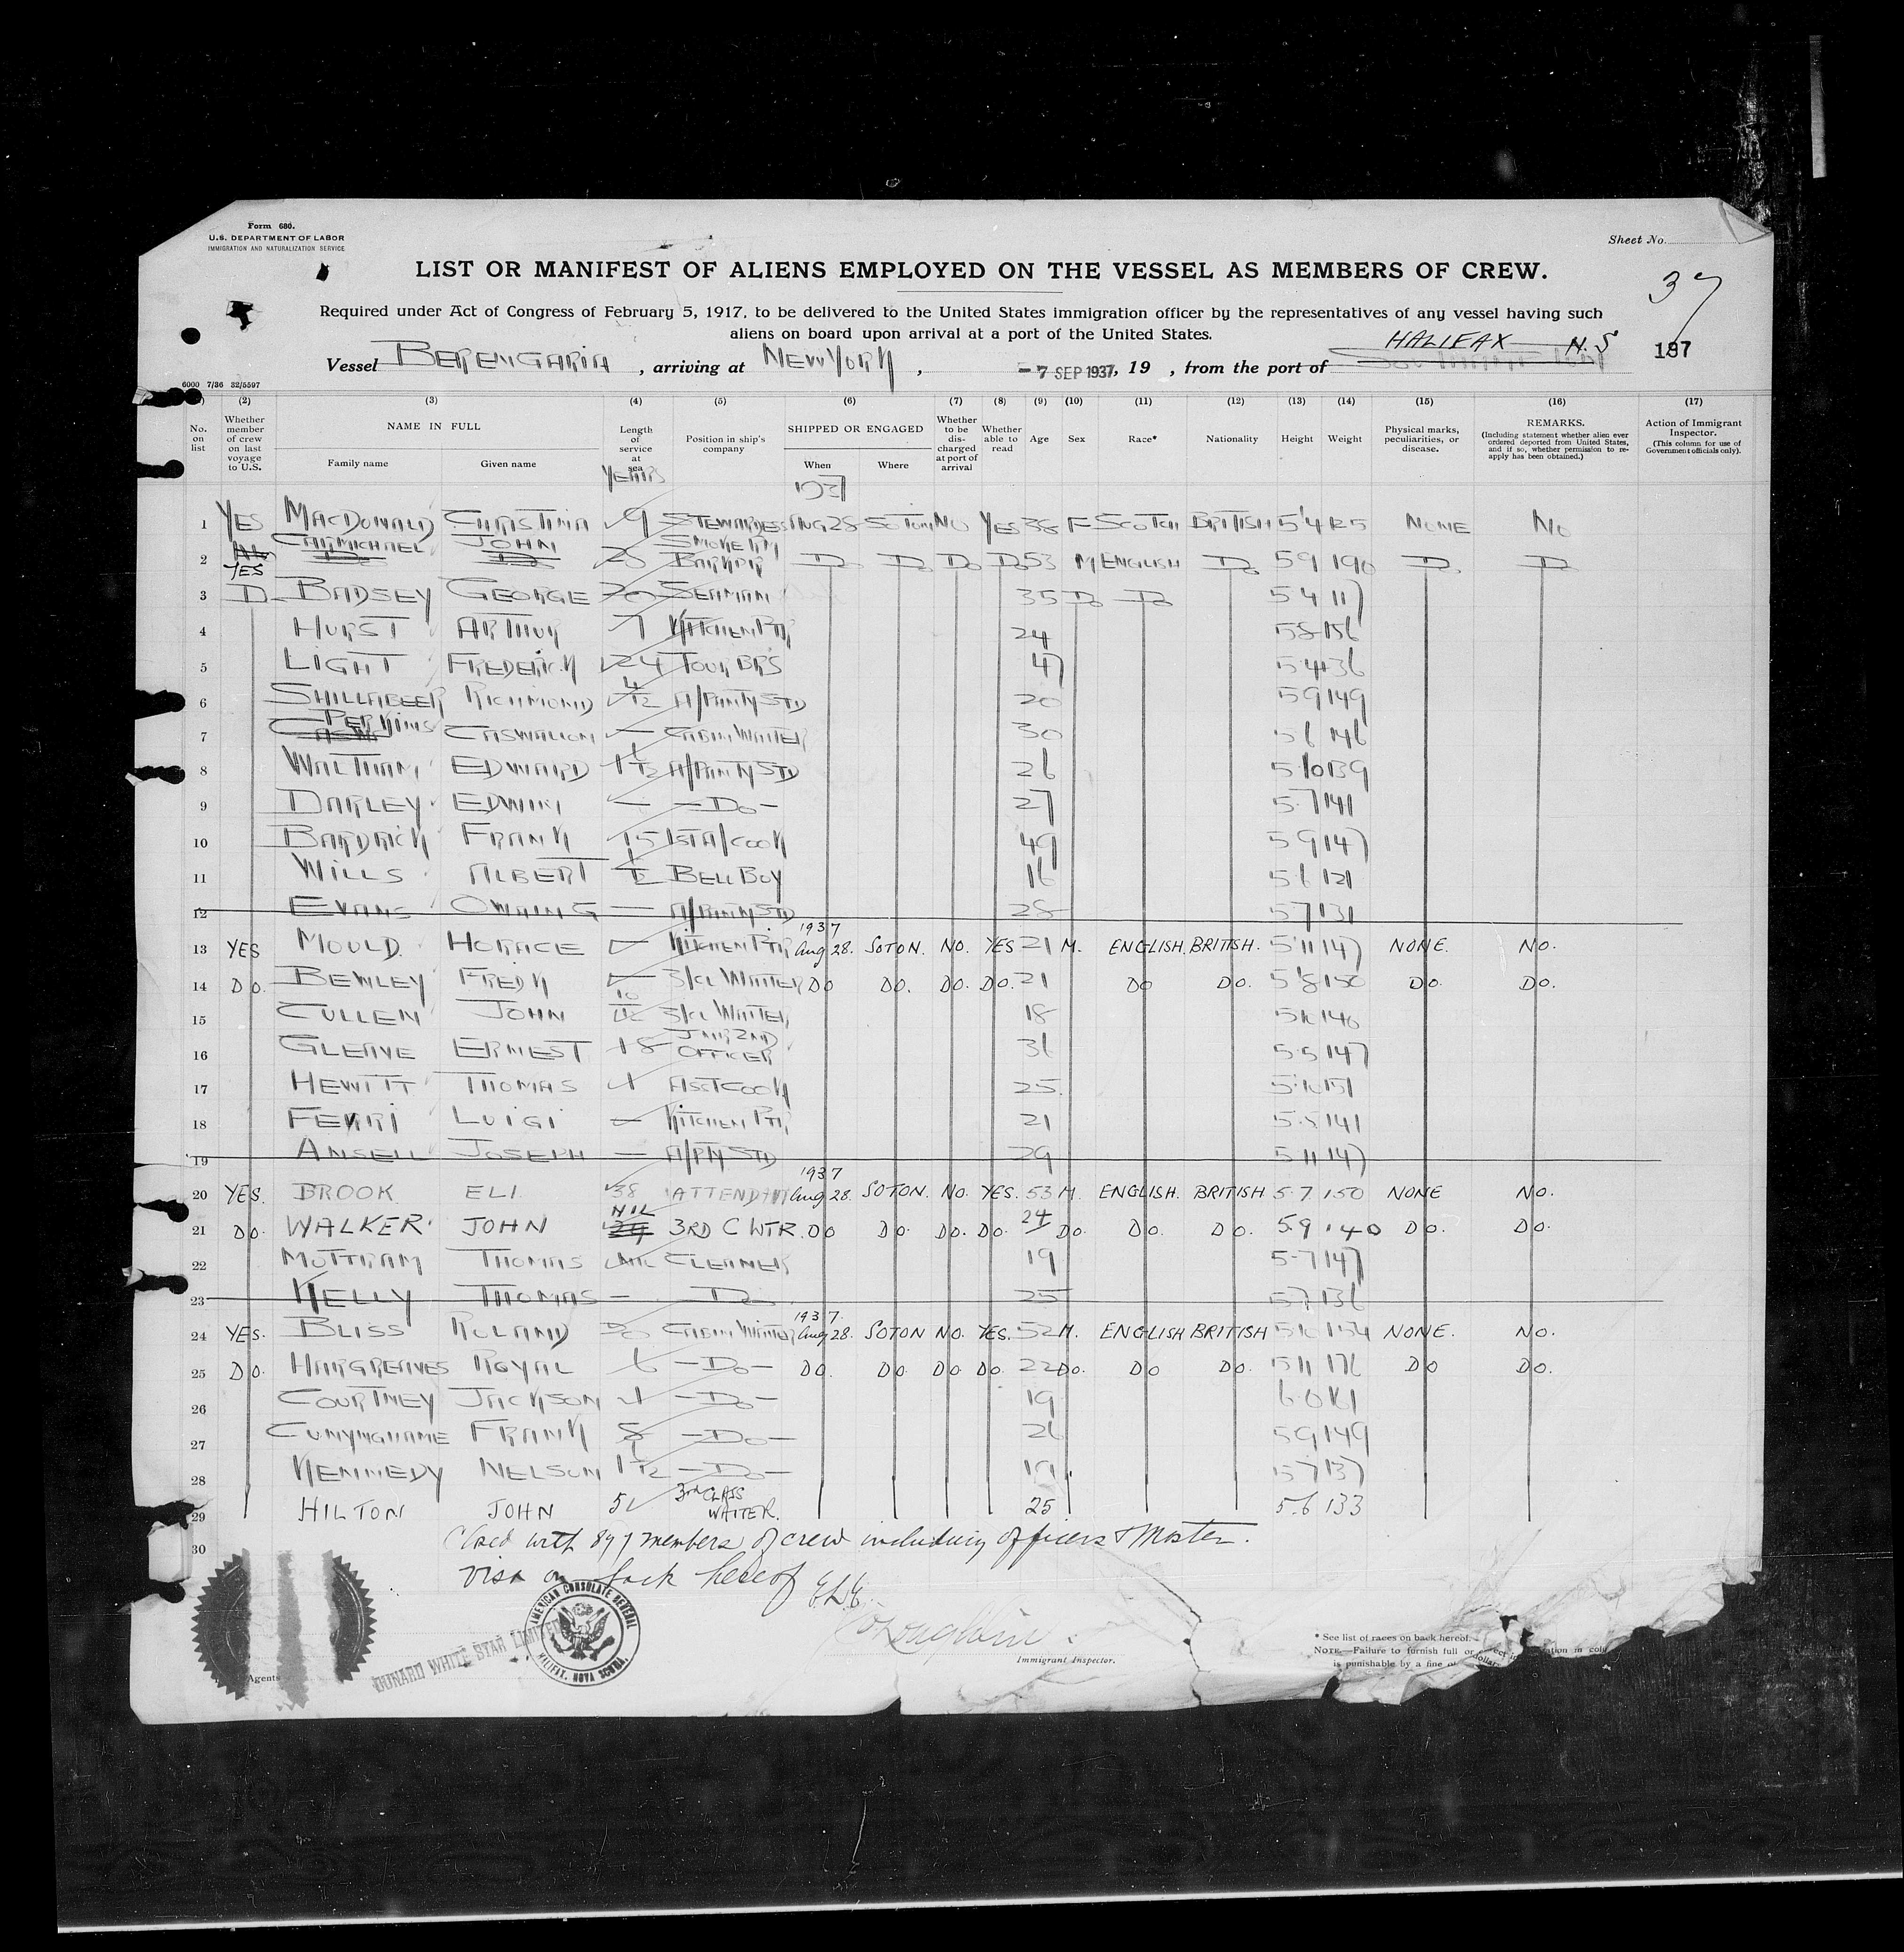 Form 680.
U.S. DEPARTMENT OF LABOR
IMMIGRATION AND NATURALIZATION SERVICE
Sheet No.
LIST OR MANIFEST OF ALIENS EMPLOYED ON THE VESSEL AS MEMBERS OF CREW.
37
Required under Act of Congress of February 5, 1917, to be delivered to the United States immigration officer by the representatives of any vessel having such
aliens on board upon arrival at a port of the United States.
HALIFAX N.S
Vessel BERENGARIA, arriving at NEW YORK, -7 SEP 1937, 19 , from the port of 187
6000 7/36 32/5597
(2) (3) (4) (5) (6) (7) (8) (9) (10) (11) (12) (13) (14) (15) (16) (17)
No. on list
Whether member of crew on last voyage to U.S.
NAME IN FULL
Family name Given name
Length of service at sea
YEARS
Position in ship's company
SHIPPED OR ENGAGED
When Where
1937
Whether to be discharged at port of arrival
Whether able to read
Age Sex Race* Nationality Height Weight
Physical marks, peculiarities, or disease.
REMARKS.
(Including statement whether alien ever ordered deported from United States, and if so, whether permission to reapply has been obtained.)
Action of Immigrant Inspector.
(This column for use of Government officials only).
1 YES MACDONALD CHRISTINA 9 STEWARDESS AUG 28 SOTON NO YES 38 F SCOTCH BRITISH 5'4 125 NONE NO
2 YES CARMICHAEL JOHN 25 SMOKE RM BARKPR Do Do Do Do 53 M ENGLISH Do 5 9 190 Do Do
3 Do BADSEY GEORGE 20 SEAMAN 35 Do Do 5 4 117
4 HURST ARTHUR 7 KITCHEN PTR 24 5 8 156
5 LIGHT FREDERICK 24 TOUR BRS 47 5 4 136
6 SHILLABEER RICHMOND 4/12 A/PANTY STD 20 5 9 149
7 PERKINS CASWALLON — CABIN WAITER 30 5 6 146
8 WALTHAM EDWARD 1 1/12 A/PANTY STD 26 5 10 139
9 DARLEY EDWIN — —Do— 27 5.7 141
10 BARDRICK FRANK 15 1ST A/COOK 49 5 9 147
11 WILLS ALBERT BELL BOY 16 5 6 121
12 EVANS OWAIN G — A/PANTY STD 28 5 7 131
13 YES MOULD HORACE — KITCHEN PTR 1937 Aug 28. SOTON. NO. YES 21 M. ENGLISH. BRITISH. 5'11 147 NONE. NO.
14 DO. BEWLEY FREDK — 3/CL WAITER DO DO. DO. DO. 21 DO DO. 5'8 150 DO. DO.
15 CULLEN JOHN 10/12 3/CL WAITER 18 146
16 GLEAVE ERNEST 18 JNR 2ND OFFICER 36 5.5 147
17 HEWITT THOMAS 1 ASST COOK 25 5.10 151
18 FERRI LUIGI — KITCHEN PTR 21 5.5 141
19 ANSELL JOSEPH — A/PTY STD 29 5 11 147
20 YES. BROOK ELI 38 ATTENDANT 1937 Aug 28. SOTON. NO. YES. 53 M. ENGLISH. BRITISH 5.7 150 NONE NO.
21 DO. WALKER JOHN NIL 3RD C WTR. DO DO. DO. DO. 24 DO. DO. DO. 5.9 140 DO. DO.
22 MOTTRAM THOMAS NIL CLEANER 19 5-7 147
23 KELLY THOMAS — Do 25 5 7 136
24 YES. BLISS ROLAND 30 CABIN WAITER 1937. Aug 28. SOTON NO. YES. 52 M. ENGLISH BRITISH 5 10 154 NONE. NO.
25 DO. HARGREAVES ROYAL 6 —Do— DO. DO. DO DO. 22 DO. DO DO. 5 11 176 DO DO.
26 COURTNEY JACKSON 1 —Do— 19 6.0 161
27 CUNYNGHAME FRANK 8 —Do— 26 5 9 149
28 KENNEDY NELSON 1 1/12 —Do— 19 5 7 137
29 HILTON JOHN 5 3rd CLASS WAITER. 25 5.6 133
30 Closed with 897 members of crew including officers & Master.
visa on back hereof ELE.
AMERICAN CONSULATE GENERAL
HALIFAX, NOVA SCOTIA.
CUNARD WHITE STAR LIMITED
Agents
Immigrant Inspector.
* See list of races on back hereof.
NOTE.—Failure to furnish full or
is punishable by a fine of dollars